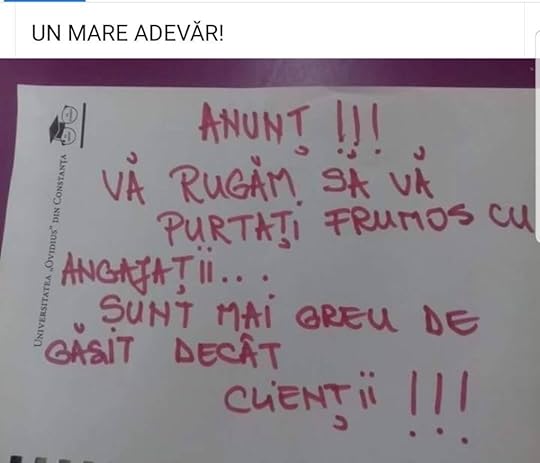 UN MARE ADEVĂR!
UNIVERSITATEA „OVIDIUS” DIN CONSTANȚA
ANUNȚ !!!
VĂ RUGĂM SĂ VĂ
PURTAȚI FRUMOS CU
ANGAJAȚII...
SUNT MAI GREU DE
GĂSIT DECÂT
CLIENȚII !!!